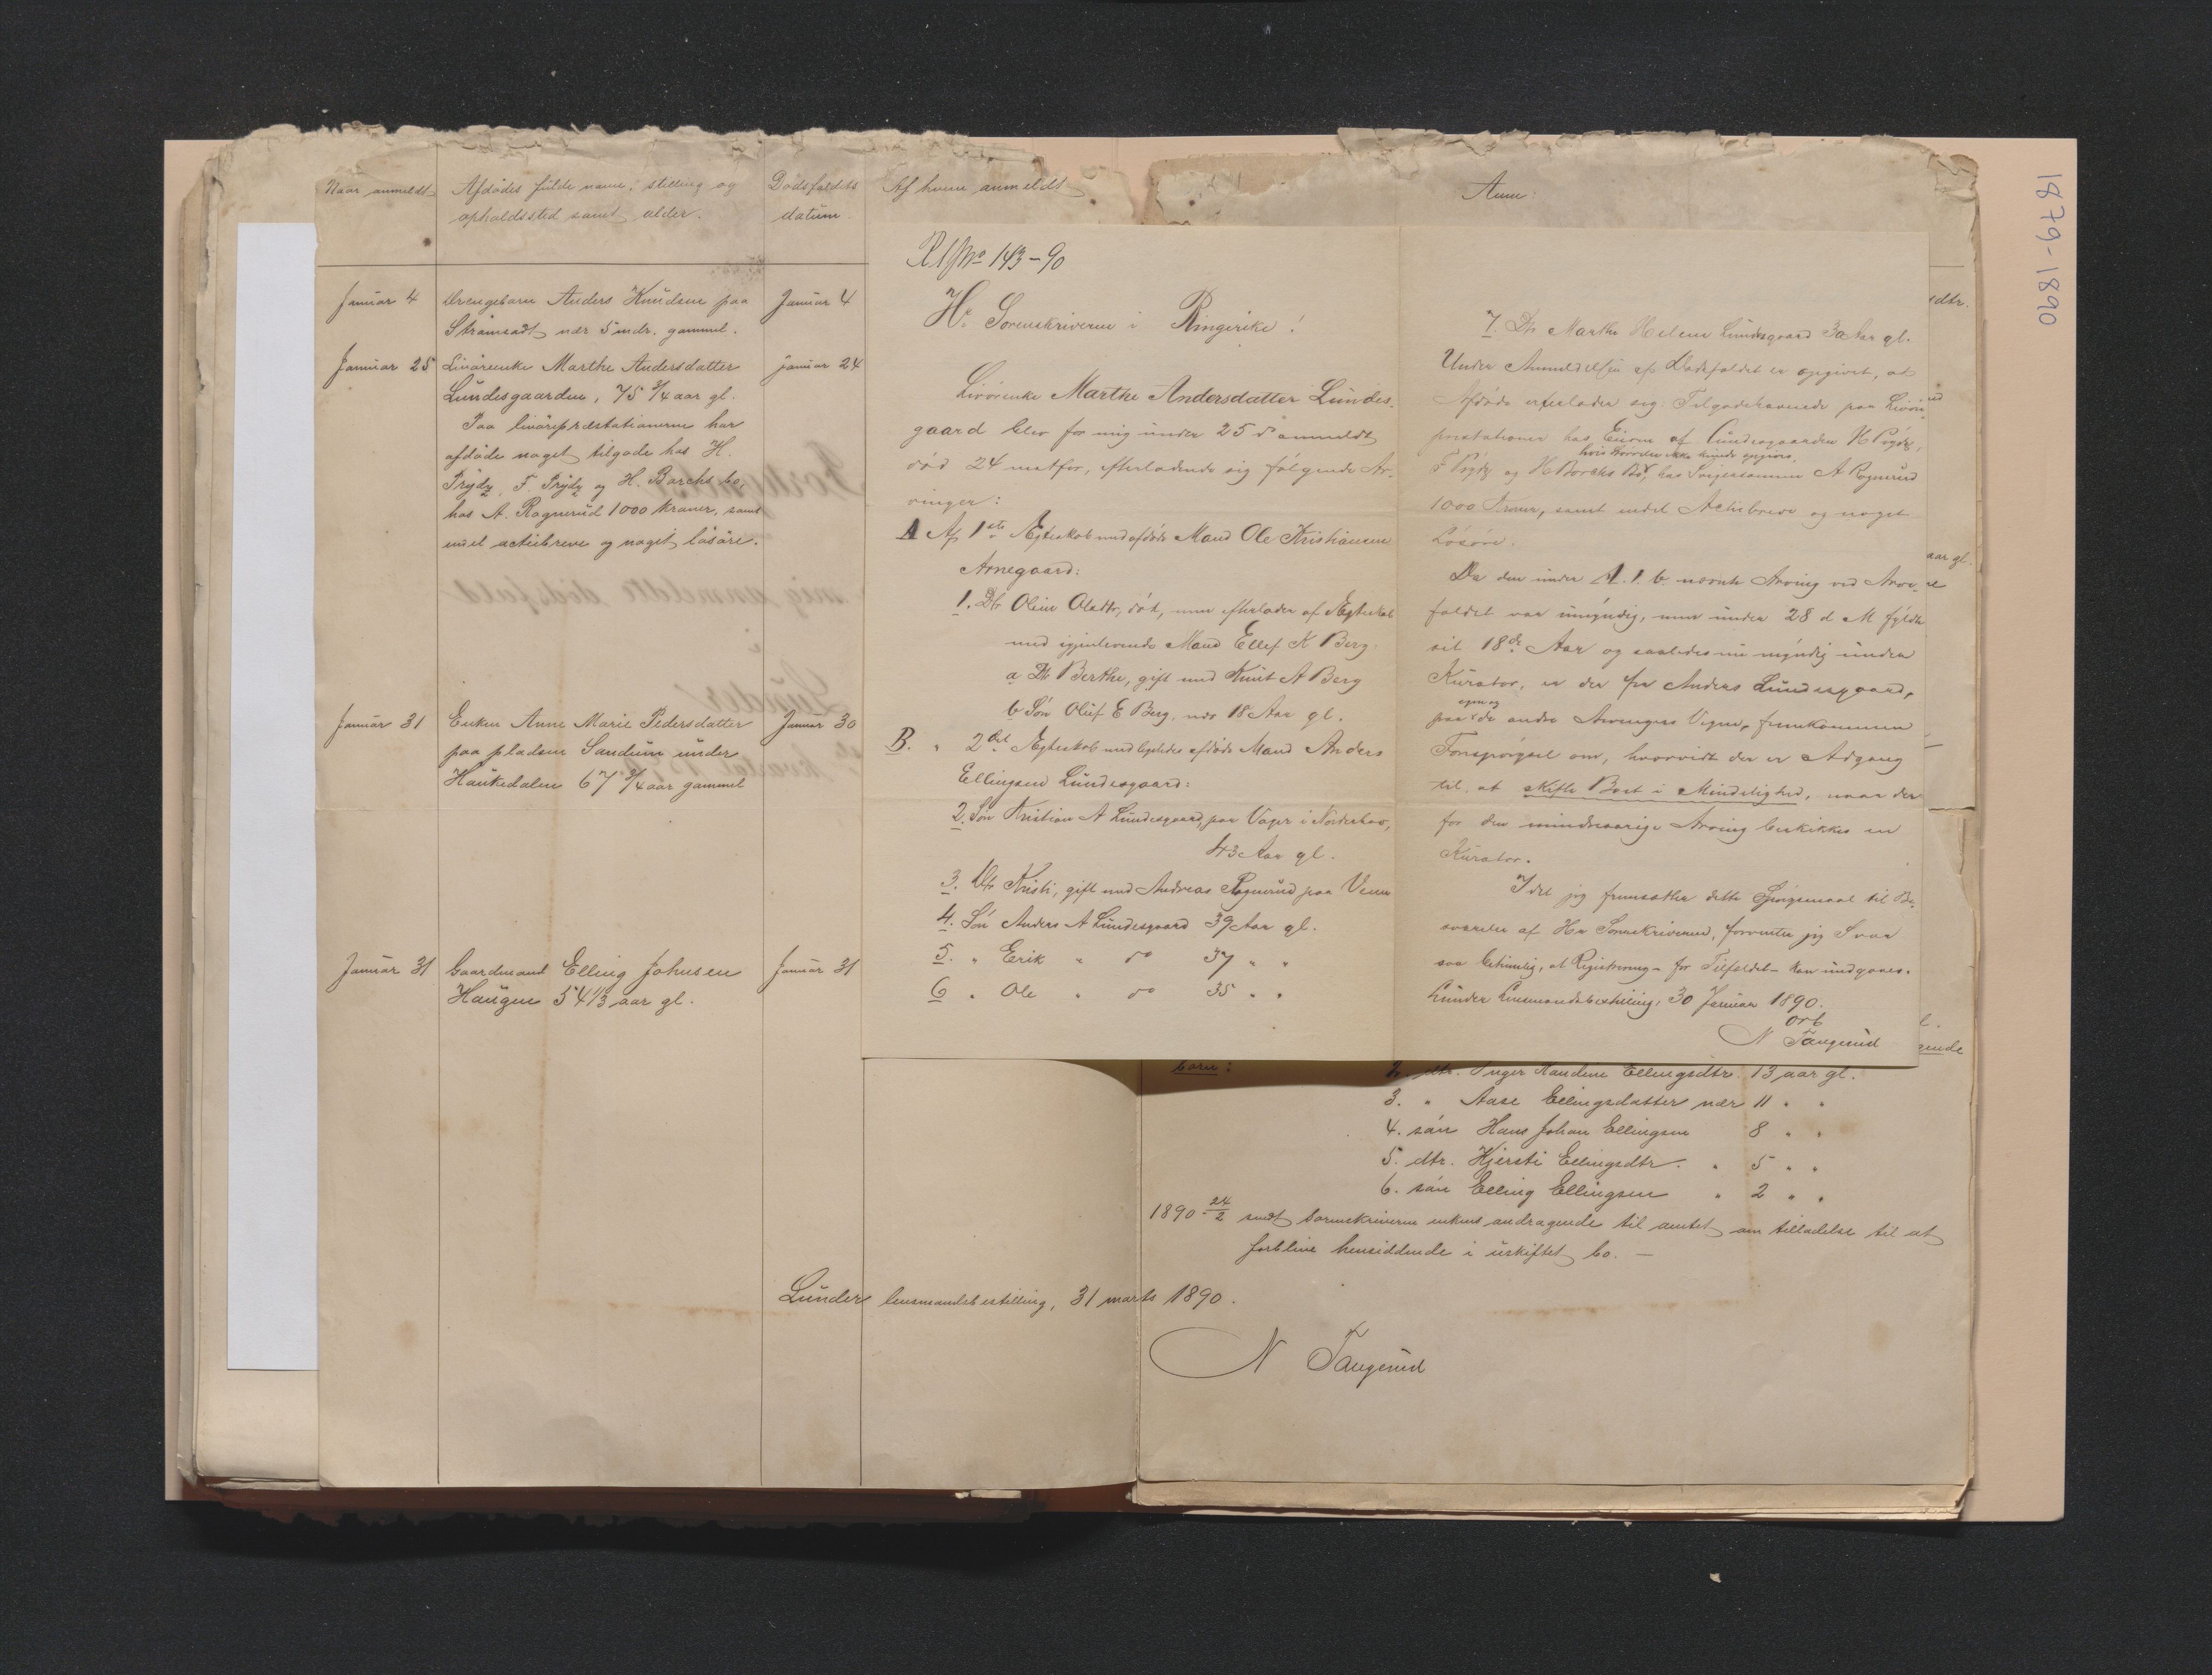 1879-1890
Naar anmeldt
Afdødes fulde navn, stilling og
opholdssted samt alder.
Dødsfaldets
datum
Af hvem anmeldt
Anm:
Januar 4
Drengebarn Anders Knudsen paa
Strømsodt nær 5 mdr. gammel.
Januar 4
Januar 25
Livørenke Marthe Andersdatter
Lundesgaarden, 75 3/4 aar gl.
Paa livørepræstationerne har
afdøde noget tilgode hos H.
Prydz, F. Prydz og H. Borchs bo,
hos A. Rognerud 1000 kroner, samt
endel actiebreve og noget løsøre.
januar 24
Januar 31
Enken Anne Marie Pedersdatter
paa pladsen Sandum under
Haukedalen 67 3/4 aar gammel
Januar 30
Januar 31
Gaardmand Elling Johnsen
Haugen 54 1/3 aar gl.
Januar 31
No 143-90
Hr. Sorenskriveren i Ringerike!
Livørenke Marthe Andersdatter Lundes-
gaard blev for mig under 25 ds anmeldt
død 24 næstfor, efterladende sig følgende Ar-
vinger:
A Af 1ste Ægteskab med afdøde Mand Ole Kristiansen
Arnegaard:
1. Dtr Oline Olsdtr, død, men efterlader af Ægteskab
med igjenlevende Mand Ellef K Berg:
a Dtr Berthe, gift med Knut A Berg
b Søn Oluf E Berg, nær 18 Aar gl.
B. " 2det Ægteskab med ligeledes afdøde Mand Anders
Ellingsen Lundesgaard:
2. Søn Kristian A Lundesgaard, paa Vager i Norderhov,
43 Aar gl.
3. Dtr Kristi, gift med Andreas Rognerud paa Veme
4. Søn Anders A Lundesgaard 39 Aar gl.
5. " Erik " do 37 " "
6 " Ole " do 35 " "
7. Dtr Marthe Helene Lundesgaard 30 Aar gl.
Under Anmeldelsen af Dødsfaldet er opgivet, at
Afdøde efterlader sig Tilgodehavende paa Livøre-
præstationer hos Eierne af Lundesgaarden H Prydz,
hvis Størrelse ikke kunde opgives,
F Prydz og H Borchs Bo, hos Svigersønnen A Rognerud
1000 Kroner, samt endel Actiebreve og noget
Løsøre.
Da den under A. 1. b nævnte Arving ved Arve-
faldet var umyndig, men under 28 d M fyldte
sit 18de Aar og saaledes nu myndig under
Kurator, er der fra Anders Lundesgaard,
egne og
paa de andre Arvingers Vegne, fremkommen
Forespørgsel om, hvorvidt der er Adgang
til at skifte Boet i Mindelighed, naar der
for den mindreaarige Arving beskikkes en
Kurator.
Idet jeg fremsætter dette Spørgsmaal til Be-
svarelse af Hr Sorenskriveren, forventer jeg Svar
saa betimelig, at Registrering - for Tilfældet - kan undgaaes.
Lunder Lensmandsbestilling, 30 Januar 1890.
Ærb
N Taugerud
sdtr.
aar gl.
børn:
2. dtr. Inger Randine Ellingsdtr. 13 aar gl.
3. " Aase Ellingsdatter nær 11 " "
4. søn Hans Johan Ellingsen 8 " "
5. dtr. Kjersti Ellingsdtr. " 5 " "
6. søn Elling Ellingsen " 2 " "
1890 24/2 sendt sorenskriveren enkens andragende til amtet om tilladelse til at
forblive hensiddende i uskiftet bo. —
Lunder lensmandsbestilling, 31 marts 1890.
N Taugerud